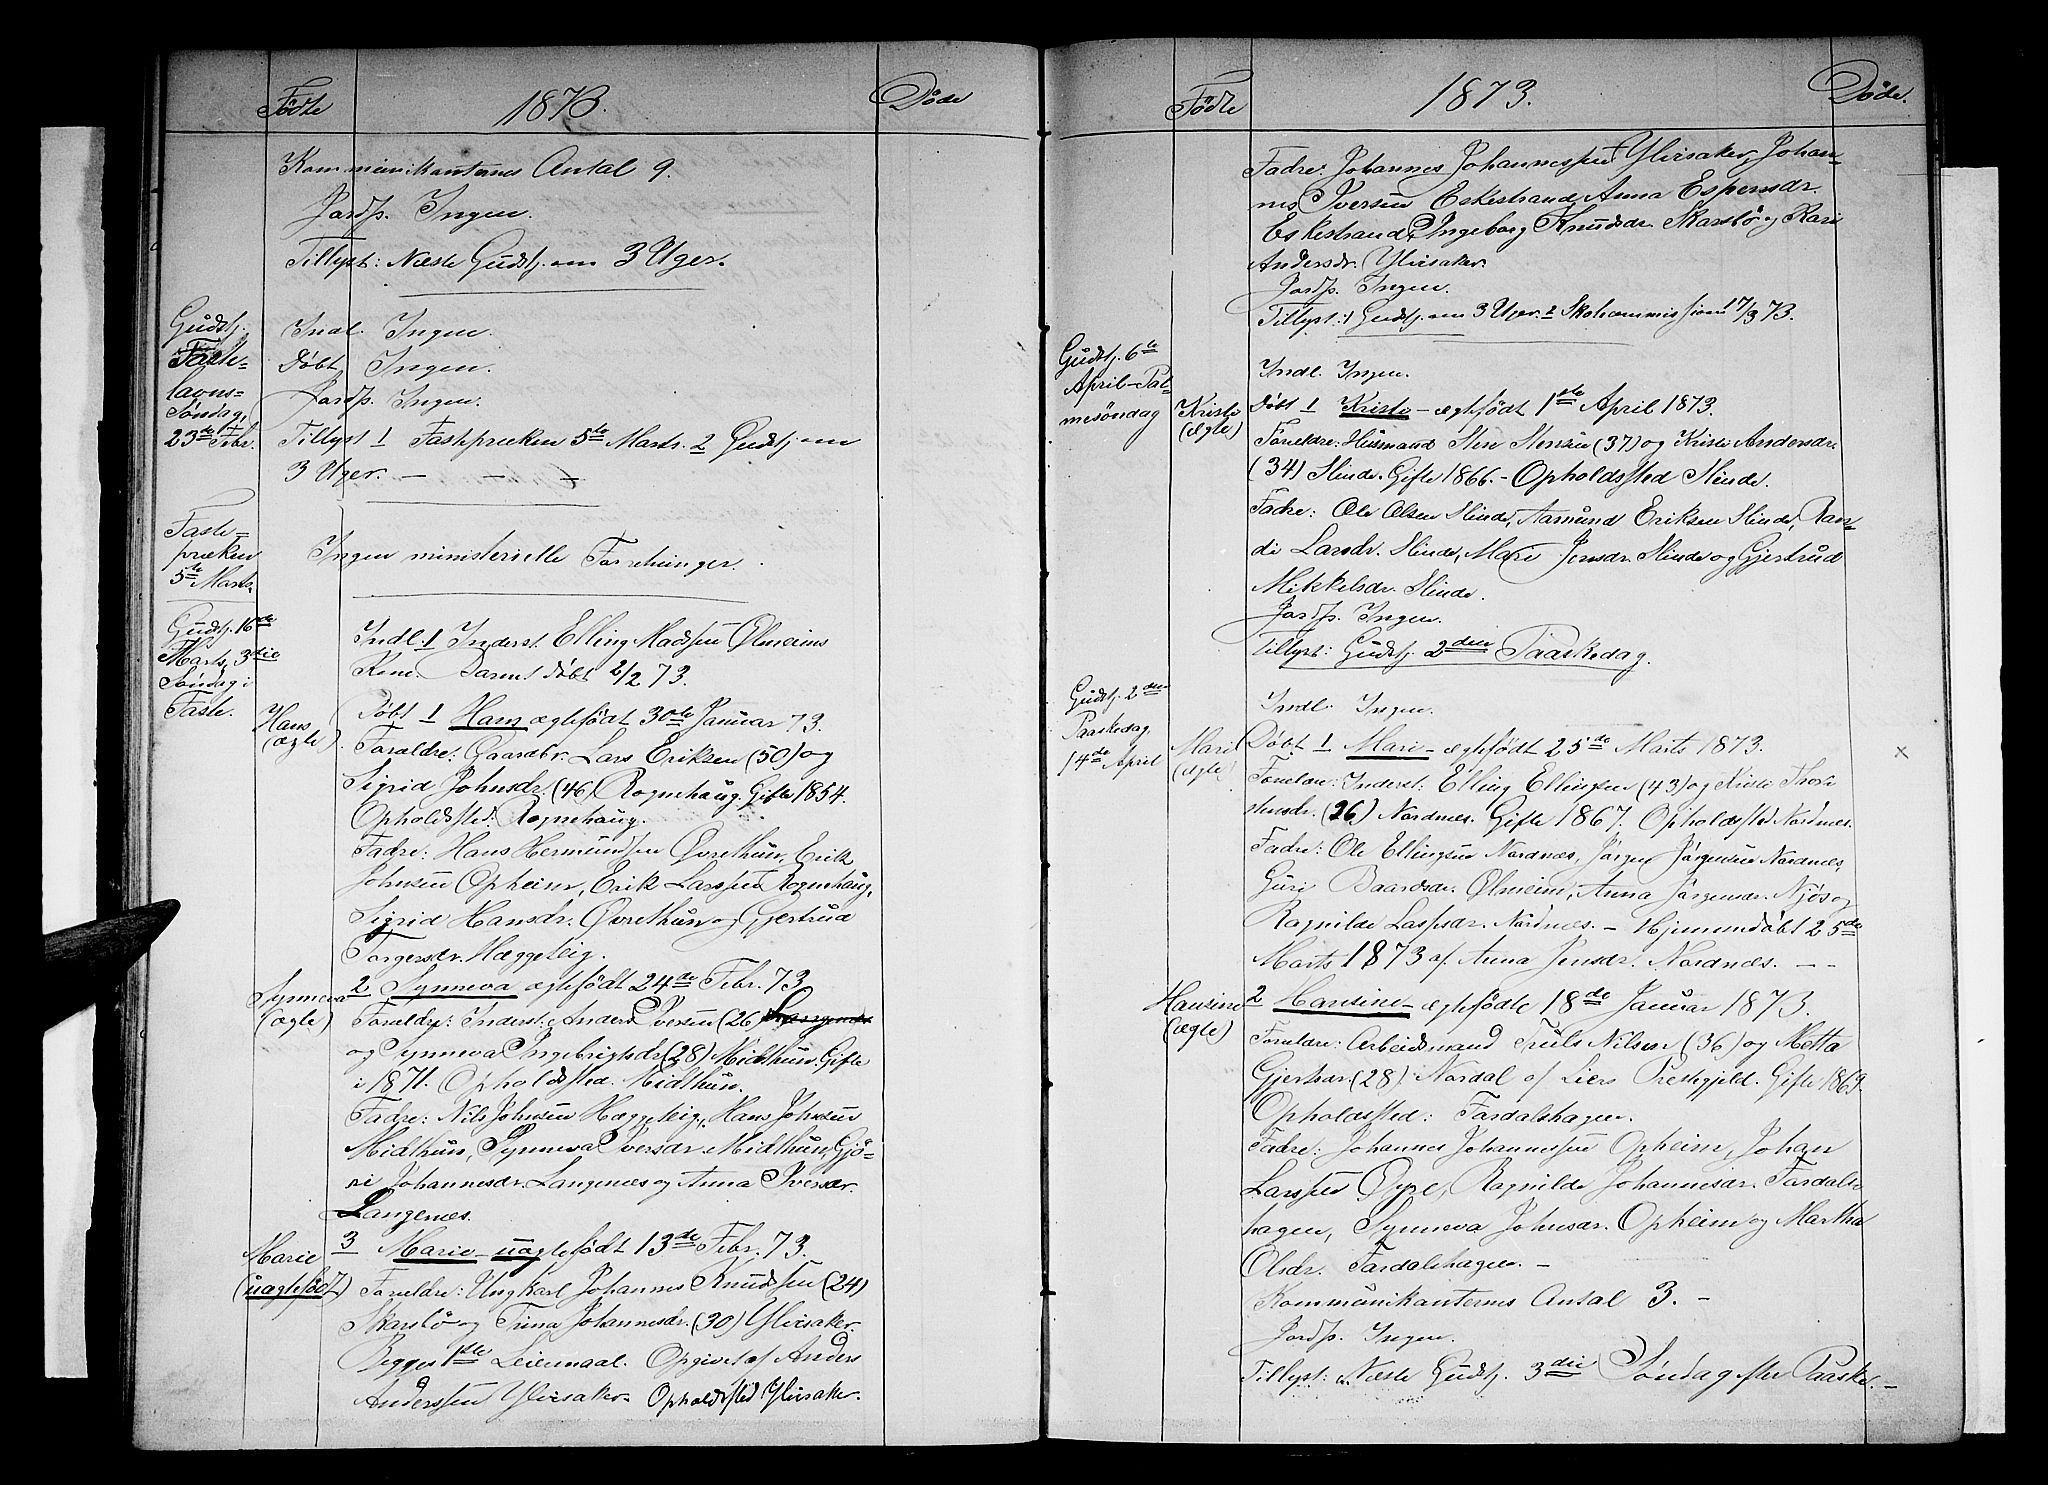 Fødte
1873.
Døde
Kommunikanternes Antal 9.
Jordf. Ingen.
Tillyst: Næste Gudstj. om 3 Uger.
Gudstj.
Faste-
lavns-
Søndag,
23de Febr.
Indl. Ingen.
Døbt, Ingen.
Jordf. Ingen.
Tillyst 1 Fastepræken 5te Marts. 2 Gudstj. om
3 Uger. — — —
Faste-
præken
5te Marts.
Ingen ministerielle Forretninger.
Gudstj. 16de
Marts, 3die
Søndag i
Faste.
Indl. 1 Inderst. Elling Madsen Ølmeims
Kone. Barnet døbt 2/2 73.
Hans
(ægte)
Døbt 1 Hans ægtefødt 30te Januar 73.
Forældre: Gaardbr. Lars Eriksen (50) og
Sigrid Johnsdr. (46) Rognehaug. Gifte 1854.
Opholdssted: Rognehaug.
Fadre: Hans Hermundsen Øvrethun, Erik
Johnsen Opheim, Erik Larssen Rognehaug,
Sigrid Hansdr. Øvrethun og Gjertrud
Torgersdr. Hæggeteig.
Synneva
(ægte)
2 Synneva ægtefødt 24de Febr. 73
Forældre: Inderst: Anders Iversen (26)
og Synneva Ingebrigtsdr. (28) Midthun. Gifte
i 1871. Opholdssted. Midthun.
Fadre: Nils Johnsen Hæggeteig, Hans Johnsen
Midthun, Synneva Iversdr. Midthun, Gjø-
ri Johannesdr. Langenæs og Anna Iversdr.
Langenæs.
Marie
(uægtefødt)
3 Marie - uægtefødt 13de Febr. 73.
Forældre: Ungkarl Johannes Knudssen (24)
Skarsbø og Trina Johannesdr. (30) Ylvisaker.
Begges 1ste Leiermaal. Opgivet af Anders
Anderssen Ylvisaker. Opholdssted Ylvisaker.
Fødte
1873.
Døde.
Fadre: Johannes Johannessen Ylvisaker, Johan-
nes Iversen Eskestrand, Anna Espensdr.
Eskestrand, Ingeborg Knudsdr. Skarsbø og Kari
Andersdr. Ylvisaker.
Jordf. Ingen.
Tillyst: 1 Gudstj. om 3 Uger. 2 Skolecommission 17/3 73.
Gudstj. 6te
April - Pal-
mesøndag
Indl. Ingen.
Kristi
(ægte)
Døbt 1 Kristi - ægtefødt 1ste April 1873.
Forældre: Husmand Sten Stensen (37) og Kristi Andersdr.
(34) Slinde. Gifte 1866. - Opholdssted Slinde.
Fadre: Ole Olsen Slinde, Aamund Eriksen Slinde, Ran-
di Larsdr. Slinde, Mari Jensdr. Slinde og Gjertrud
Mikkelsdr. Slinde.
Jordf. Ingen.
Tillyst: Gudstj. 2den Paaskedag.
Gudstj. 2den
Paaskedag
14de April
Indl. Ingen.
Mari
(ægte)
Døbt 1 Mari - ægtefødt 25de Marts 1873. x
Forældre: Inderst: Elling Ellingsen (43) og Kristi Thor-
stensdr. (26) Nordnæs. Gifte 1867. Opholdssted Nordnæs.
Fadre: Ole Ellingsen Nordnæs, Jørgen Jørgensen Nordnæs,
Guri Baardsdr. Ølmeim, Anna Jørgensdr. Njøs og
Ragnilde Lassesdr. Nordnæs. - Hjemmedøbt 25de
Marts 1873 af Anna Jensdr. Nordnæs. — —
Hansine
(ægte)
2 Hansine - ægtefødte 18de Januar 1873.
Forældre: Arbeidsmand Truls Nilsen (36) og Metta
Gjertsdr. (28) Nordal af Liers Prestegjeld. Gifte 1869.
Opholdssted: Fardalshagen.
Fadre: Johannes Johannessen Opheim, Johan
Larssen Øyre, Ragnilde Johannesdr. Fardals-
hagen, Synneva Johnsdr. Opheim og Martha
Olsdr. Fardalshagen. -
Kommunikanternes Antal 3. -
Jordf. Ingen.
Tillyst: Næste Gudstj. 3die Søndag efter Paaske. -